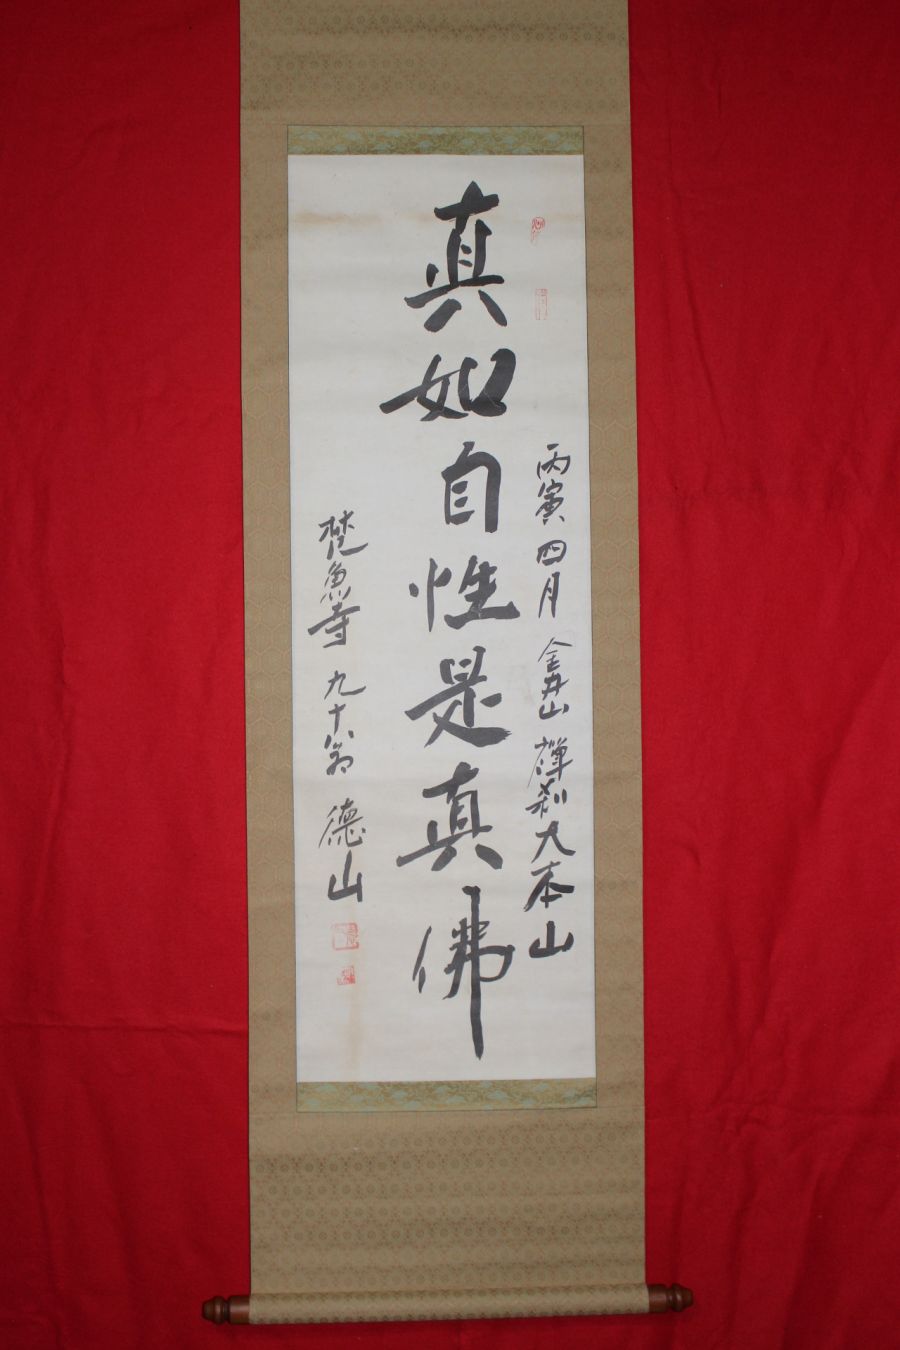 丙寅四月 金井山 禪刹大本山
真如自性是真佛
梵魚寺 九十六翁 德山